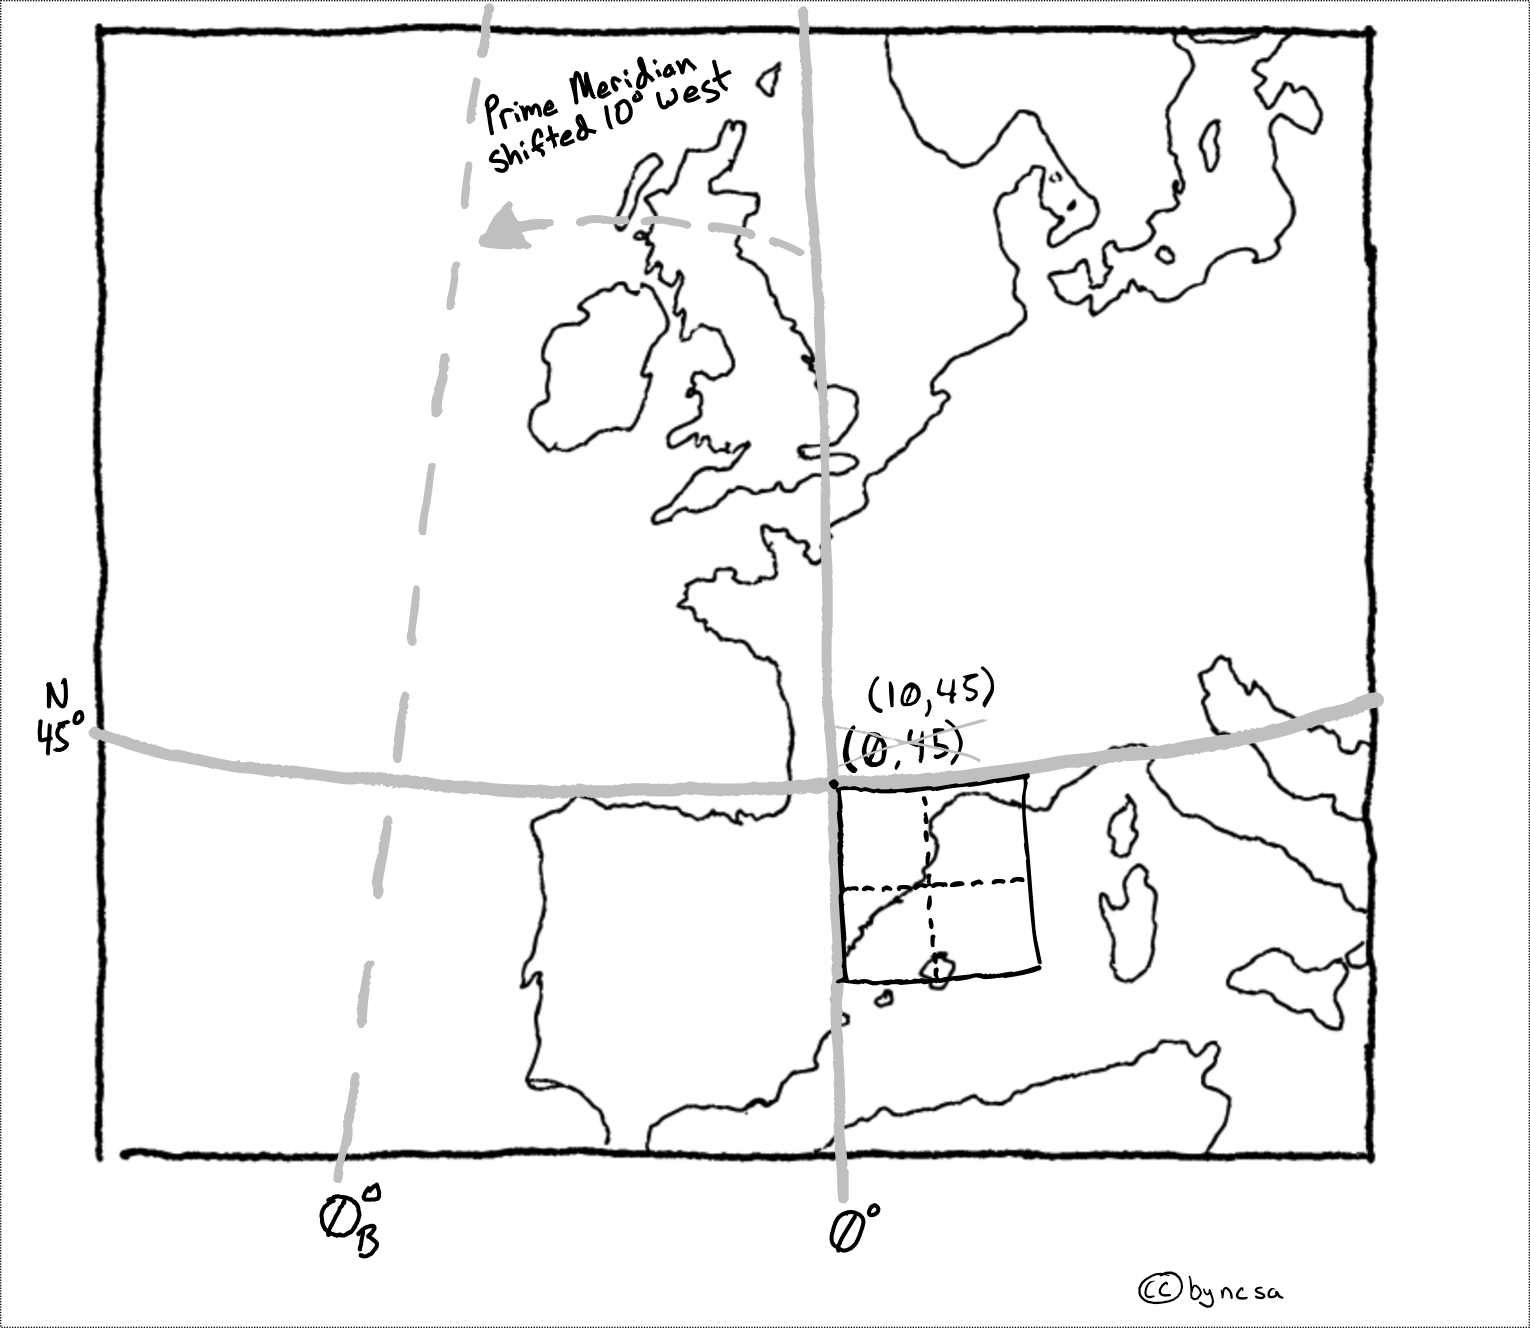 Prime Meridian
shifted 10° west
N
45°
(10,45)
(0,45)
0°B
0°
cc by nc sa